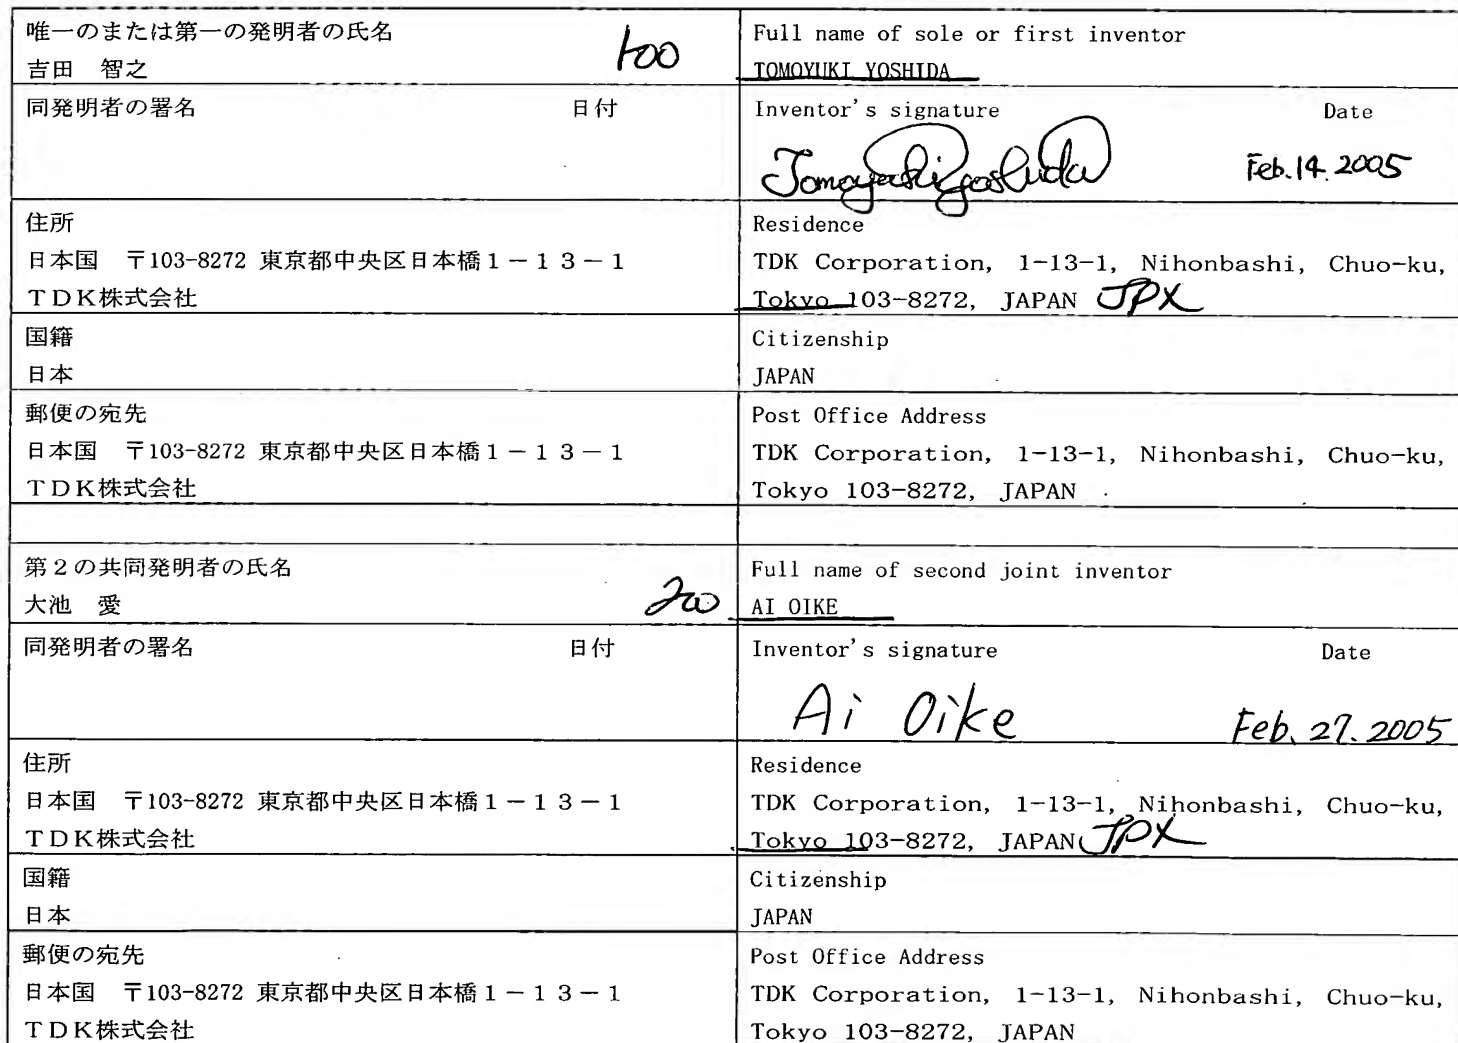 唯一のまたは第一の発明者の氏名
吉田 智之 100
Full name of sole or first inventor
TOMOYUKI YOSHIDA
同発明者の署名 日付
Inventor's signature Date
Tomoyuki Yoshida Feb.14.2005
住所
日本国 〒103-8272 東京都中央区日本橋1-13-1
TDK株式会社
Residence
TDK Corporation, 1-13-1, Nihonbashi, Chuo-ku,
Tokyo 103-8272, JAPAN JPX
国籍
日本
Citizenship
JAPAN
郵便の宛先
日本国 〒103-8272 東京都中央区日本橋1-13-1
TDK株式会社
Post Office Address
TDK Corporation, 1-13-1, Nihonbashi, Chuo-ku,
Tokyo 103-8272, JAPAN
第2の共同発明者の氏名
大池 愛 200
Full name of second joint inventor
AI OIKE
同発明者の署名 日付
Inventor's signature Date
Ai Oike Feb.27.2005
住所
日本国 〒103-8272 東京都中央区日本橋1-13-1
TDK株式会社
Residence
TDK Corporation, 1-13-1, Nihonbashi, Chuo-ku,
Tokyo 103-8272, JAPAN JPX
国籍
日本
Citizenship
JAPAN
郵便の宛先
日本国 〒103-8272 東京都中央区日本橋1-13-1
TDK株式会社
Post Office Address
TDK Corporation, 1-13-1, Nihonbashi, Chuo-ku,
Tokyo 103-8272, JAPAN